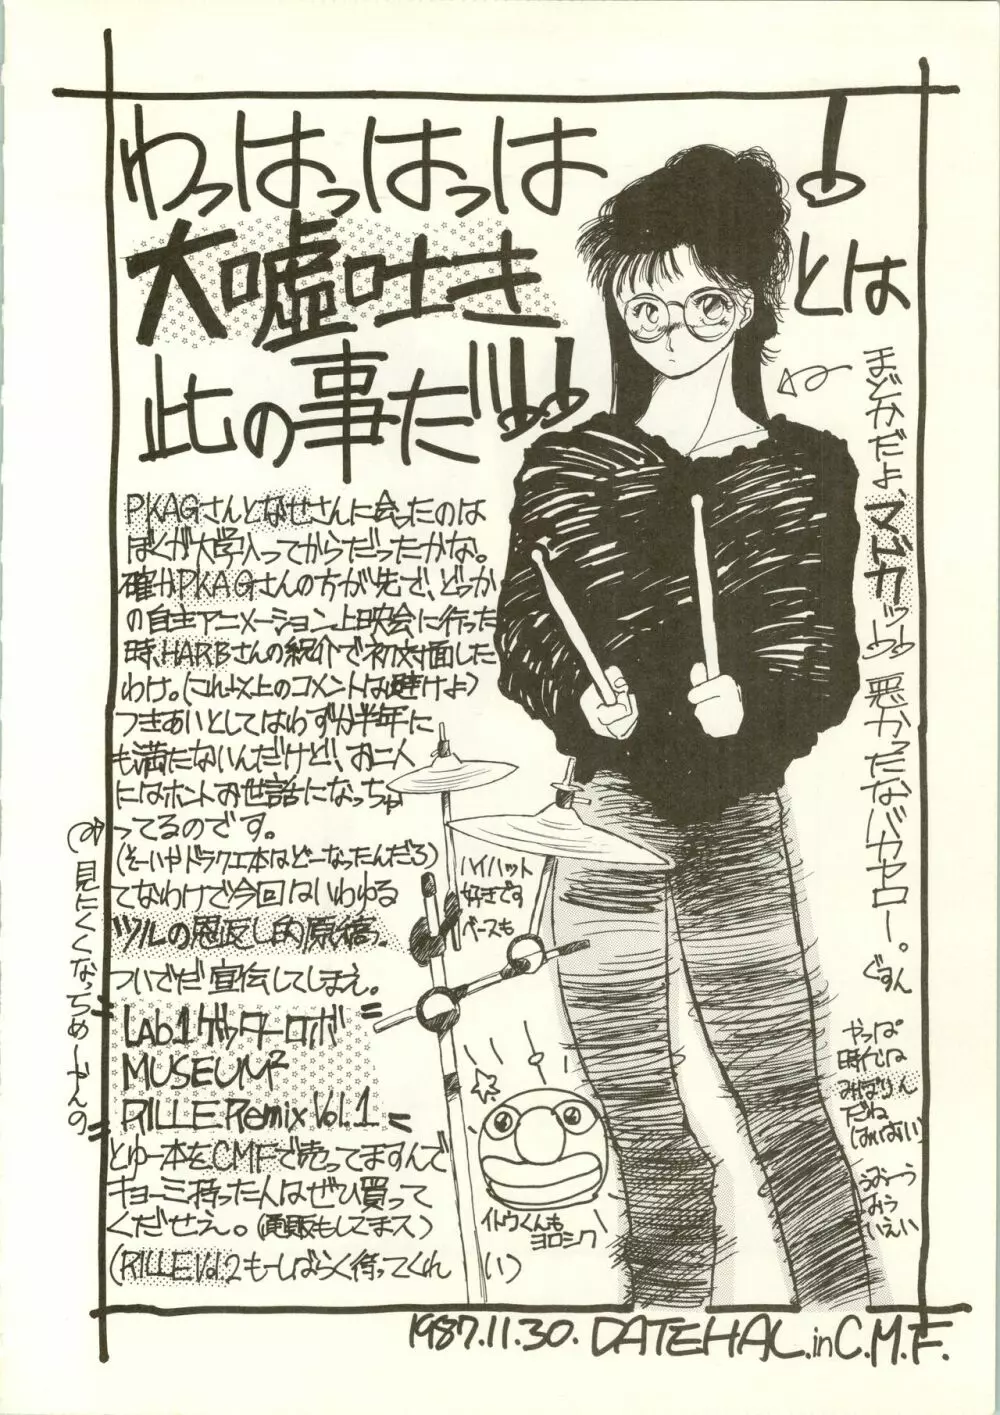 わっはっはっは！とは
大嘘吐き
此の事だ!!
PKAGさんとなせさんに会ったのは
ぼくが大学入ってからだったかな。
確かPKAGさんの方が先で、どっか
の自主アニメーション上映会に行った
時、HARBさんの紹介で初対面した
わけ。(これ以上のコメントは避けよ)
つきあいとしてはわずか半年に
も満たないんだけど、お二人
にはホントお世話になっちゃ
ってるのです。
(そーいやドラクエ本はどーなったんだろ)
てなわけで今回はいわゆる
ツルの恩返し的原稿。
ついでだ宣伝してしまえ。
Lab.1 ゲッターロボ
MUSEUM²
RILLE Remix Vol.1
とゆー本をCMFで売ってますんで
キョーミ持った人はぜひ買って
くだせえ。(通販もしてまス)
(RILLE Vol.2もーしばらく待ってくれい)
見にくくなっちめーやんの
ハイハット
好きです
ベースも
イトウくんも
ヨロシク
まどかだよ、マドカッ!!悪かったなバカヤロー。ぐすん
やっぱ
時代は
みぽりん
だね
うおーう
おう
いえい
1987.11.30. DATEHAL. in C.M.F.